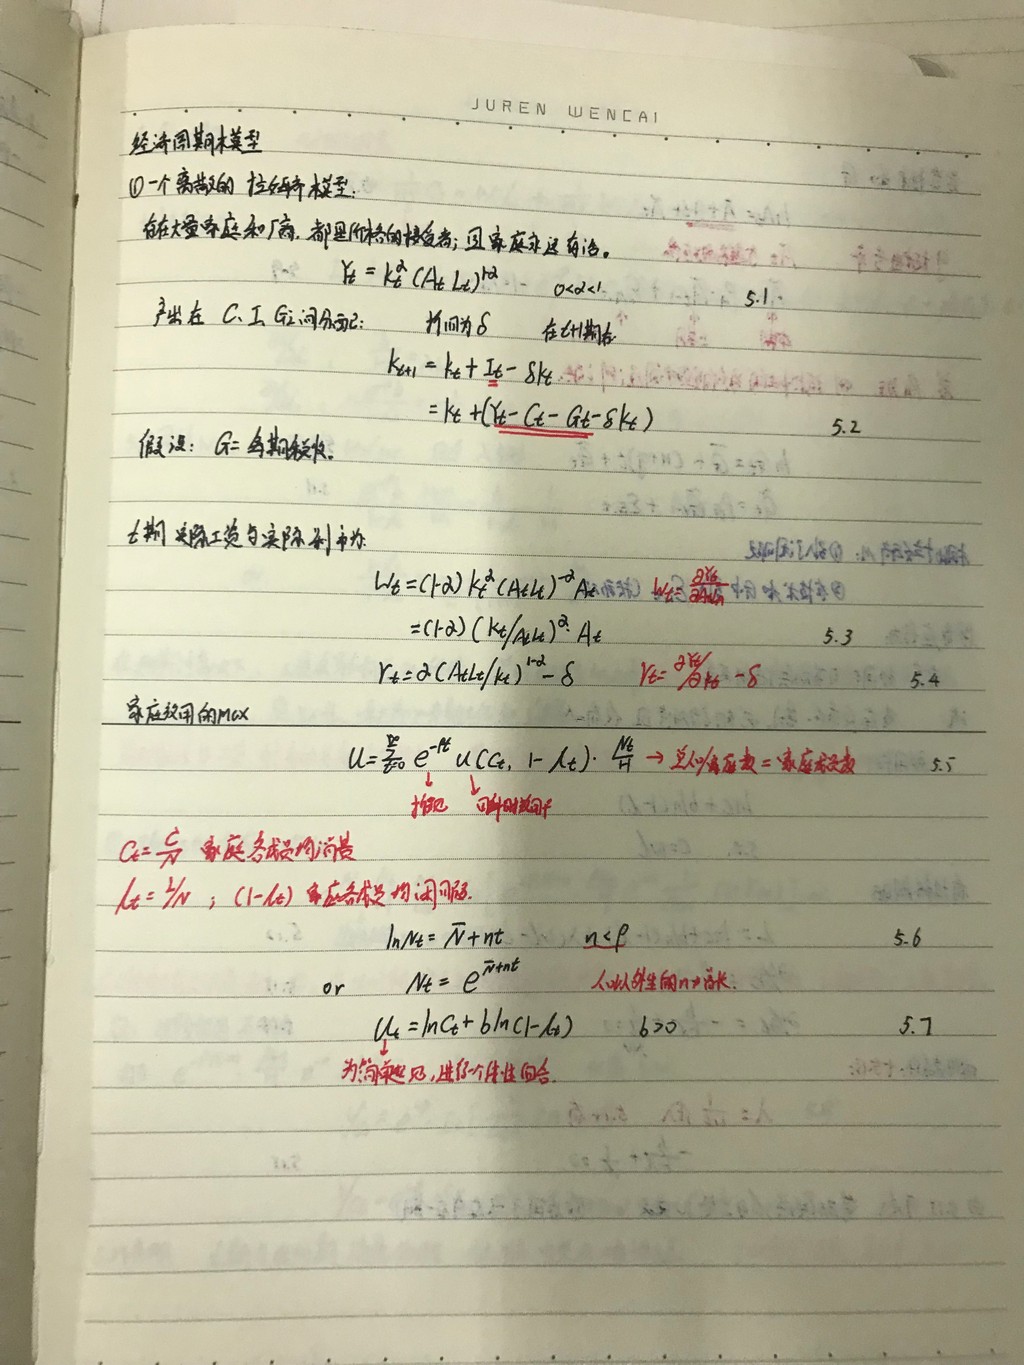 JUREN WENCAI
经济周期模型
①一个离散的拉姆齐模型:
存在大量家庭和厂商,都是价格的接受者;且家庭永远存活。
Yt = Kt^α (At Lt)^1-α 0<α<1 5.1
产出在 C、I、G之间分配: 折旧为δ 在t+1期有
Kt+1 = Kt + It - δKt
= Kt + (Yt - Ct - Gt - δKt) 5.2
假设: G= 每期税收。
t期 实际工资与实际利率为:
Wt = (1-α) Kt^α (AtLt)^-α At Wt =
= (1-α) (Kt/AtLt)^α · At 5.3
rt = α (AtLt/Kt)^1-α - δ rt = ∂Yt/∂Kt - δ 5.4
家庭效用的max
U = ∞∑t=0 e^-ρt u(Ct, 1-lt) · Nt/H → 总人口/家庭数 = 家庭成员数 5.5
折现
Ct = C/N 家庭各成员均消费
lt = L/N ; (1-lt) 家庭各成员均闲暇.
lnNt = N̄ + nt n<ρ 5.6
or Nt = e^N̄+nt 人口以外生的n增长.
Ut = lnCt + b ln(1-lt) b>0 5.7
为简单起见,进行